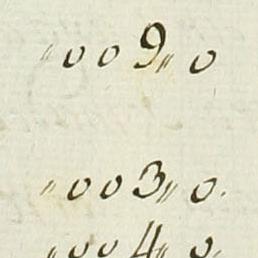 〃 0 0 9 〃 0
〃 0 0 3 〃 0.
〃 0 0 4 〃 0.